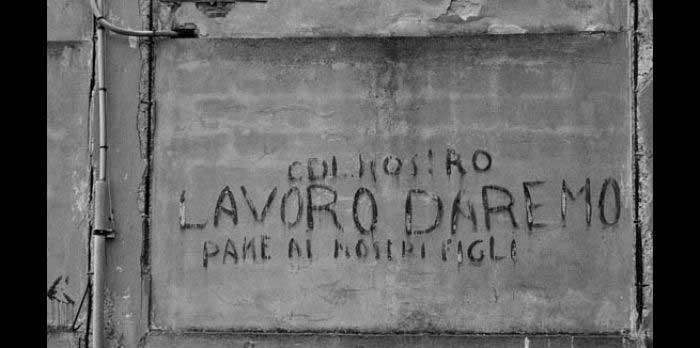 COL NOSTRO
LAVORO DAREMO
PANE AI NOSTRI FIGLI